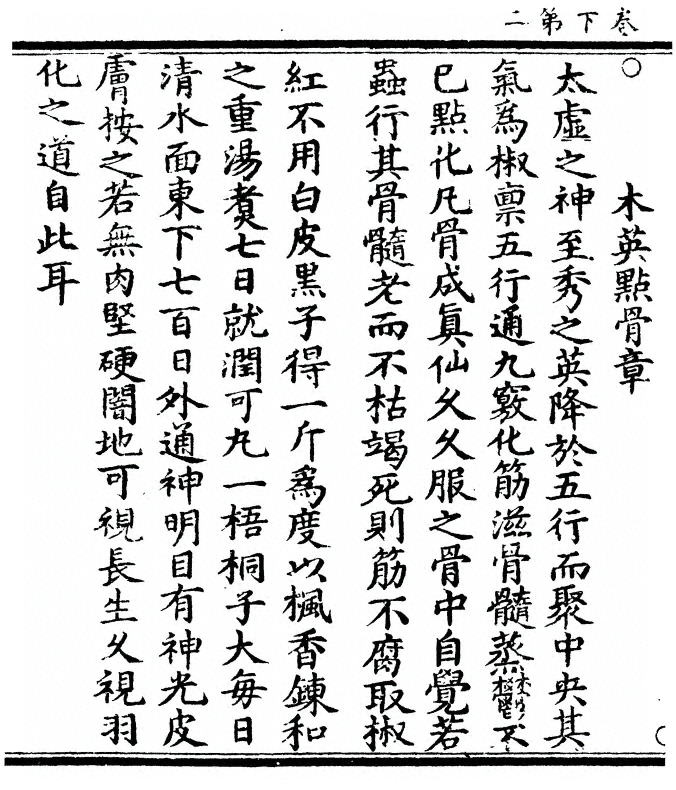 卷下第二
木英點骨章
太虛之神至秀之英降於五行而聚中央其
氣爲椒禀五行通九竅化筋滋骨髓蒸鬱不
已點化凡骨成眞仙久久服之骨中自覺若
蟲行其骨髓老而不枯竭死則筋不腐取椒
紅不用白皮黑子得一斤爲度以楓香鍊和
之重湯煑七日就潤可丸一梧桐子大每日
清水面東下七百日外通神明目有神光皮
膚按之若無肉堅硬闇地可視長生久視羽
化之道自此耳